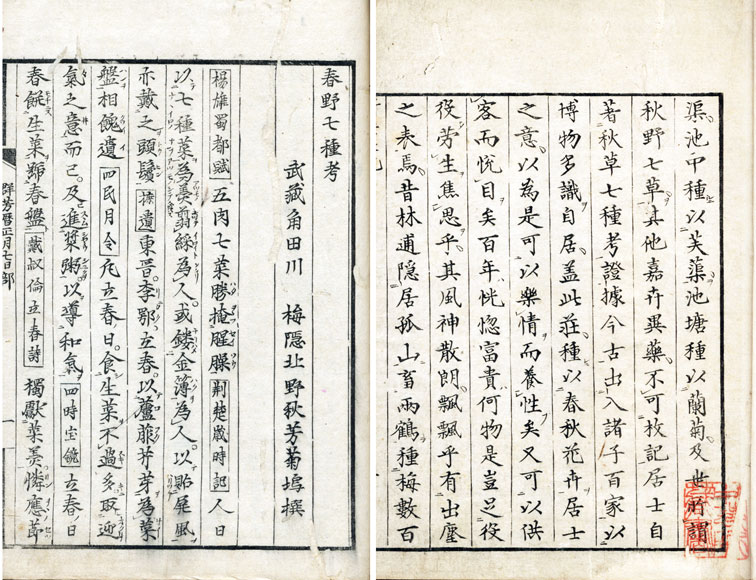 渠池中種以芙蕖池塘種以蘭菊及世所謂
秋野七草其他嘉卉異藥不可枚記居士自
著秋草七種考證據今古出入諸子百家以
博物多識自居蓋此莊種以春秋花卉居士
之意以為是可以樂情而養性矣又可以供
客而悅目矣百年恍惚富貴何物是豈足役
役勞生焦思乎其風神散朗飄飄乎有出塵
之表焉昔林逋隱居孤山畜兩鶴種梅數百
春野七種考
武藏角田川　梅隱北野秋芳菊塢撰
楊雄蜀都賦 五肉七菜朦掩腥臊 荊楚歲時記 人日
以七種菜為羹翦綵為人或鏤金薄為人以貼屏風
亦戴之頭鬢 摭遺 東晋李鄂立春以蘆菔芹芽為菜
盤相餽遺 四民月令 凡立春日食生菜不過多取迎
氣之意而已及進漿粥以導和氣 四時宝鏡 立春日
春餅生菜號春盤 戴叔倫立春詩 獨獻菜羹憐應節
群芳暦正月七日部
一